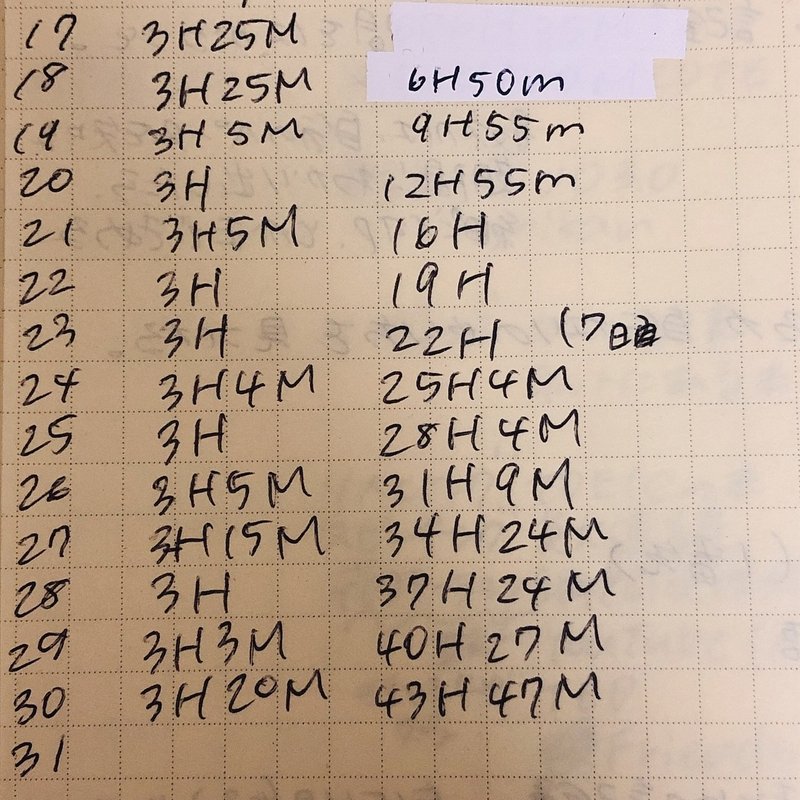 17 3H25M
18 3H25M 6H50m
19 3H5M 9H55m
20 3H 12H55m
21 3H5M 16H
22 3H 19H
23 3H 22H (7日目
24 3H4M 25H4M
25 3H 28H4M
26 3H5M 31H9M
27 3H15M 34H24M
28 3H 37H24M
29 3H3M 40H27M
30 3H20M 43H47M
31